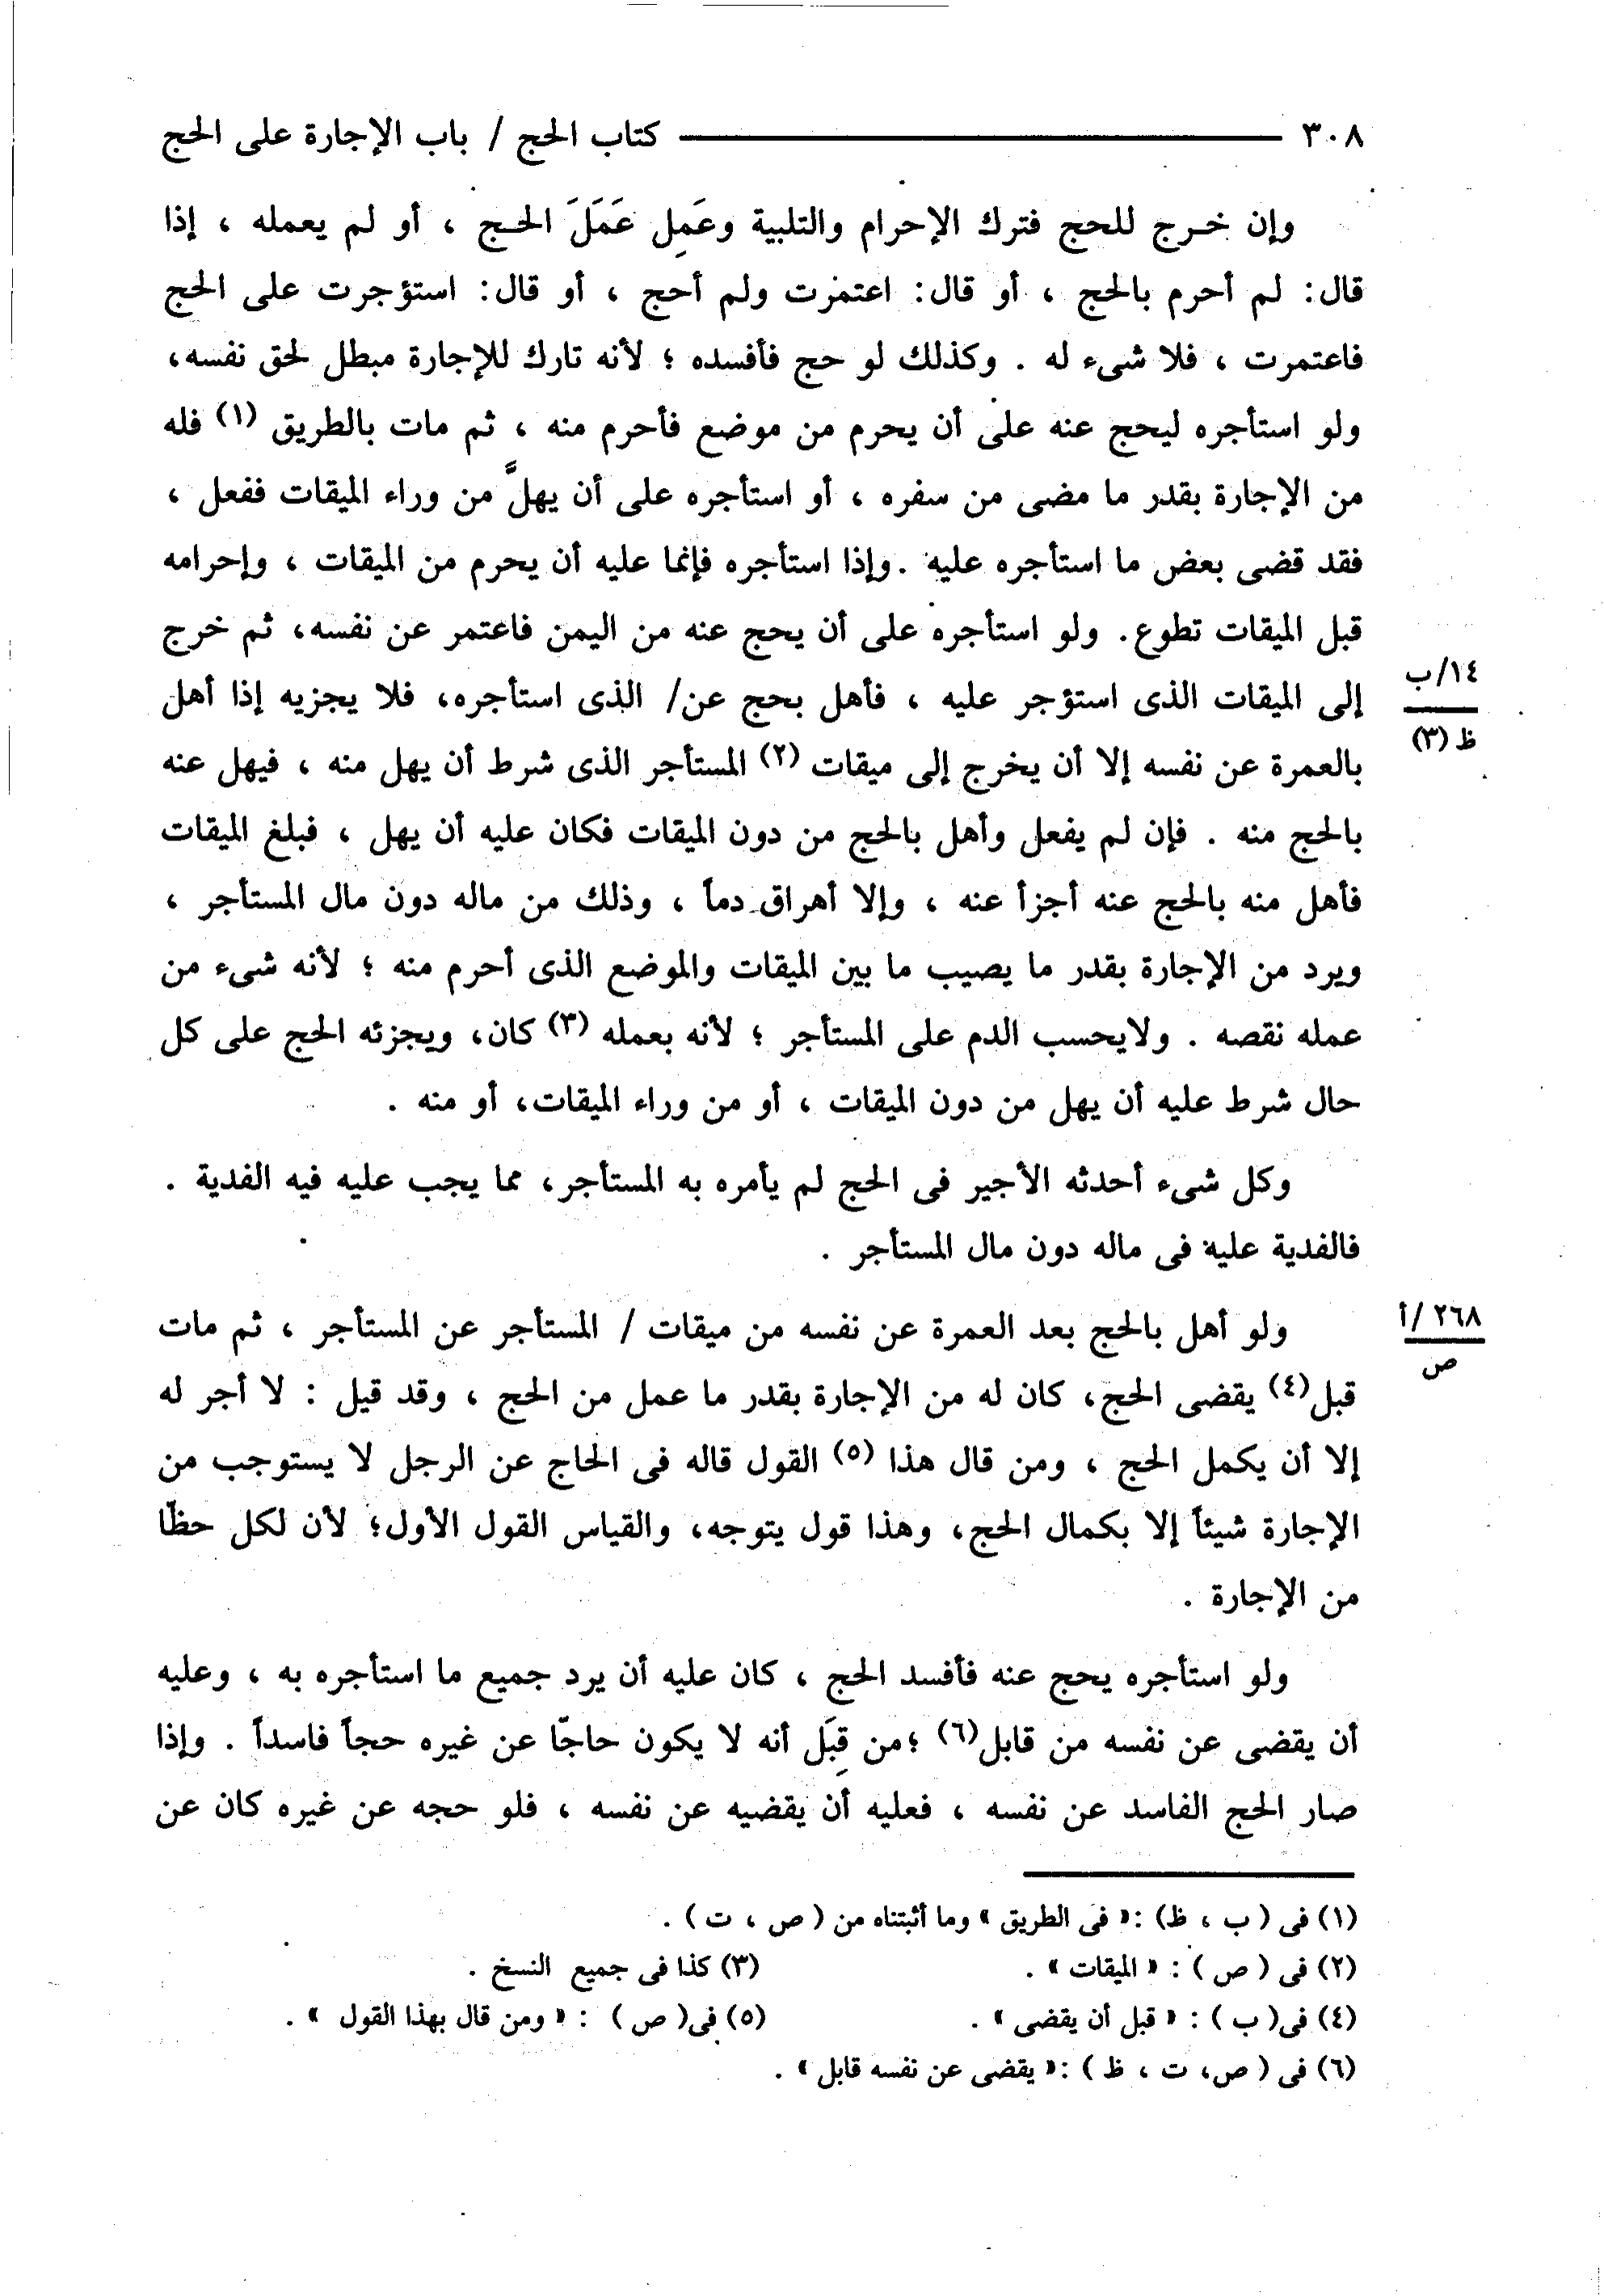 ٣٠٨ كتاب الحج / باب الإجارة على الحج
وإن خـرج للحج فترك الإحرام والتلبية وعَمِل عَمَلَ الحـج ، أو لم يعمله ، إذا
قال: لم أحرم بالحج ، أو قال: اعتمرت ولم أحج ، أو قال: استؤجرت على الحج
فاعتمرت ، فلا شىء له . وكذلك لو حج فأفسده ؛ لأنه تارك للإجارة مبطل لحق نفسه،
ولو استأجره ليحج عنه على أن يحرم من موضع فأحرم منه ، ثم مات بالطريق (١) فله
من الإجارة بقدر ما مضى من سفره ، أو استأجره على أن يهلَّ من وراء الميقات ففعل ،
فقد قضى بعض ما استأجره عليه .وإذا استأجره فإنما عليه أن يحرم من الميقات ، وإحرامه
قبل الميقات تطوع. ولو استأجره على أن يحج عنه من اليمن فاعتمر عن نفسه، ثم خرج
١٤/ب
إلى الميقات الذى استؤجر عليه ، فأهل بحج عن/ الذى استأجره، فلا يجزيه إذا أهل
ظ (٣)
بالعمرة عن نفسه إلا أن يخرج إلى ميقات (٢) المستأجر الذى شرط أن يهل منه ، فيهل عنه
بالحج منه . فإن لم يفعل وأهل بالحج من دون الميقات فكان عليه أن يهل ، فبلغ الميقات
فأهل منه بالحج عنه أجزأ عنه ، وإلا أهراق دماً ، وذلك من ماله دون مال المستأجر ،
ويرد من الإجارة بقدر ما يصيب ما بين الميقات والموضع الذى أحرم منه ؛ لأنه شىء من
عمله نقصه . ولايحسب الدم على المستأجر ؛ لأنه بعمله (٣) كان، ويجزئه الحج على كل
حال شرط عليه أن يهل من دون الميقات ، أو من وراء الميقات، أو منه .
وكل شىء أحدثه الأجير فى الحج لم يأمره به المستأجر، مما يجب عليه فيه الفدية .
فالفدية عليه فى ماله دون مال المستأجر .
٢٦٨ /أ
ولو أهل بالحج بعد العمرة عن نفسه من ميقات / المستأجر عن المستأجر ، ثم مات
ص
قبل(٤) يقضى الحج، كان له من الإجارة بقدر ما عمل من الحج ، وقد قيل : لا أجر له
إلا أن يكمل الحج ، ومن قال هذا (٥) القول قاله فى الحاج عن الرجل لا يستوجب من
الإجارة شيئاً إلا بكمال الحج، وهذا قول يتوجه، والقياس القول الأول؛ لأن لكل حظّا
من الإجارة .
ولو استأجره يحج عنه فأفسد الحج ، كان عليه أن يرد جميع ما استأجره به ، وعليه
أن يقضى عن نفسه من قابل(٦) ؛من قِبَل أنه لا يكون حاجّا عن غيره حجاً فاسداً . وإذا
صار الحج الفاسد عن نفسه ، فعليه أن يقضيه عن نفسه ، فلو حجه عن غيره كان عن
(١) فى ( ب ، ظ) :« فى الطريق » وما أثبتناه من ( ص ، ت ) .
(٢) فى ( ص ) : « الميقات » . (٣) كذا فى جميع النسخ .
(٤) فى( ب ) : « قبل أن يقضى » . (٥) فى( ص ) : « ومن قال بهذا القول » .
(٦) فى ( ص، ت ، ظ ) :« يقضى عن نفسه قابل » .